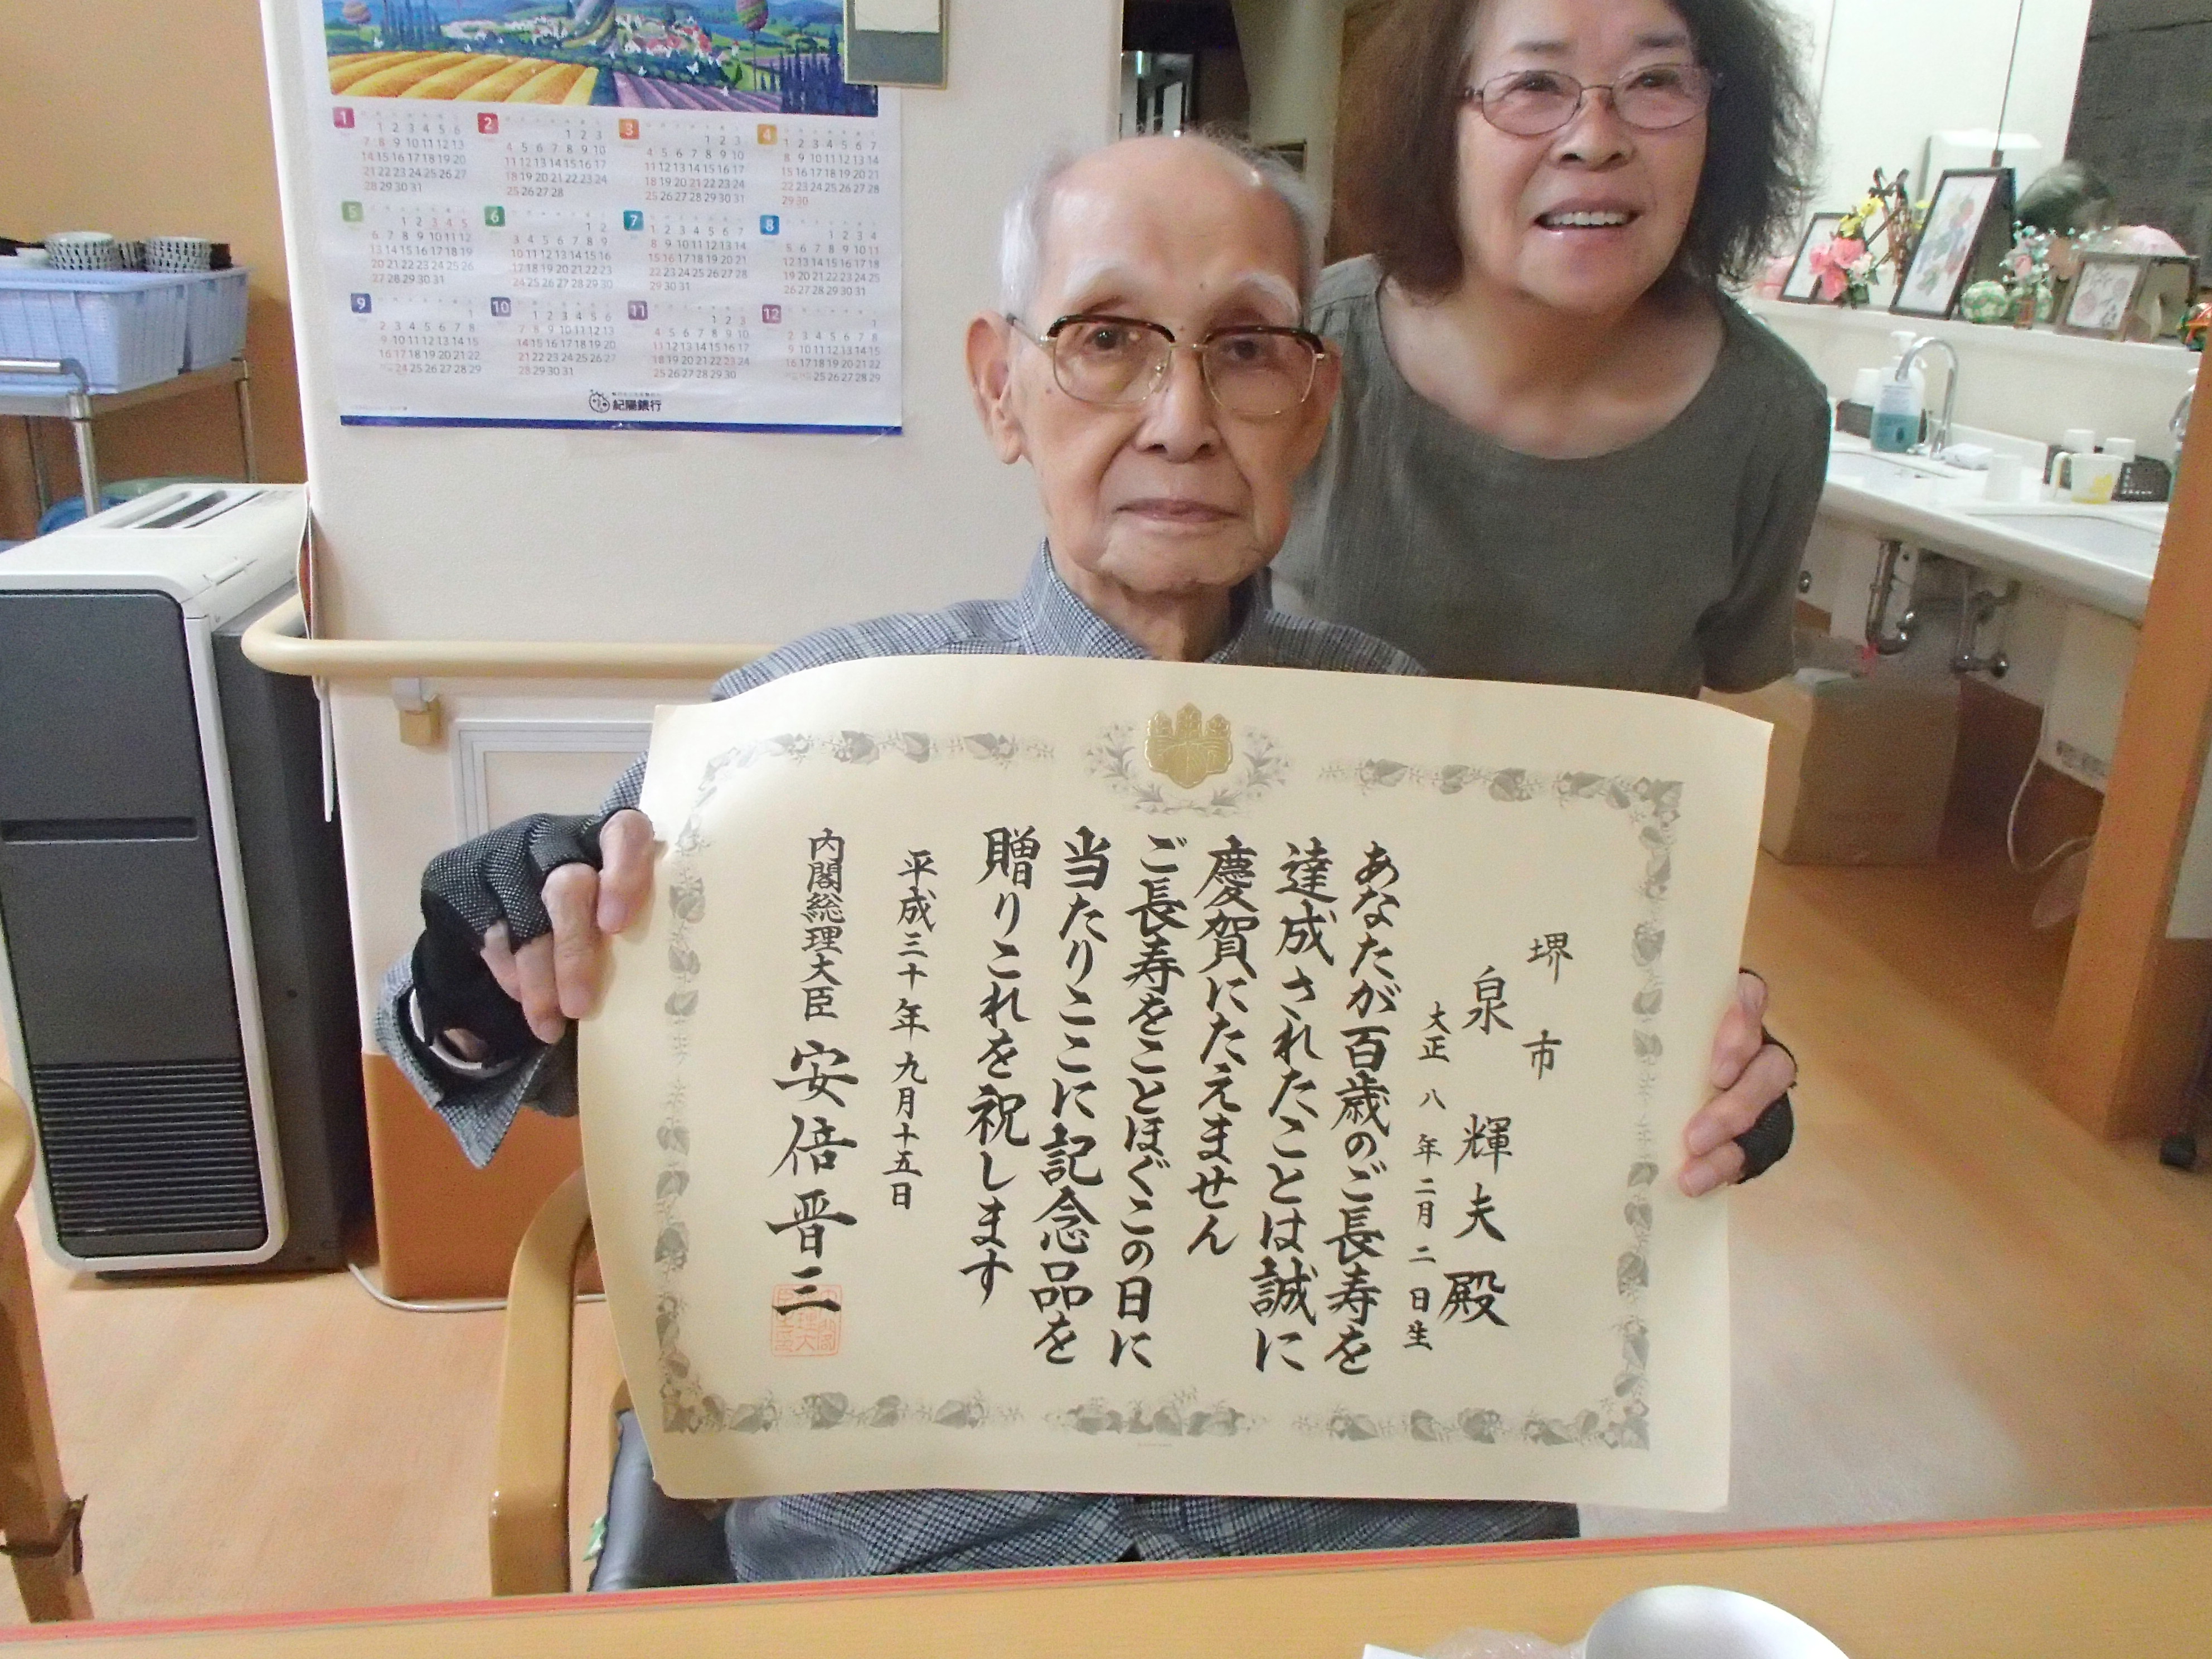 紀陽銀行
堺市
泉輝夫殿
大正八年二月二日生
あなたが百歳のご長寿を
達成されたことは誠に
慶賀にたえません
ご長寿をことほぐこの日に
当たりここに記念品を
贈りこれを祝します
平成三十年九月十五日
内閣総理大臣 安倍晋三